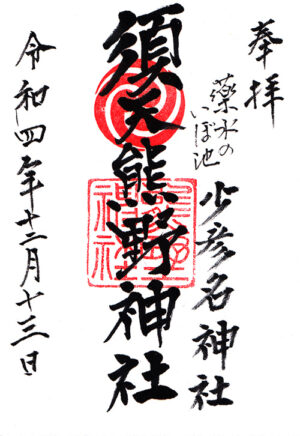 奉拝
薬水の
いぼ池
少彦名神社
須天熊野神社
令和四年十二月十三日